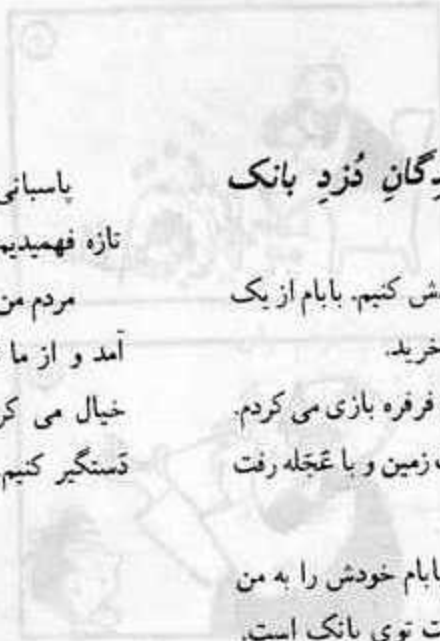 دِگانِ دُزدِ بانک
ش کنیم. بابام از یک
خرید.
فرفره بازی می کردم.
زمین و با عَجَله رفت
بابام خودش را به من
ت توی بانک است.
پاسبانی
تازه فهمیدیم
مردم من
آمد و از ما
خیال می کر
دَستگیر کنیم.